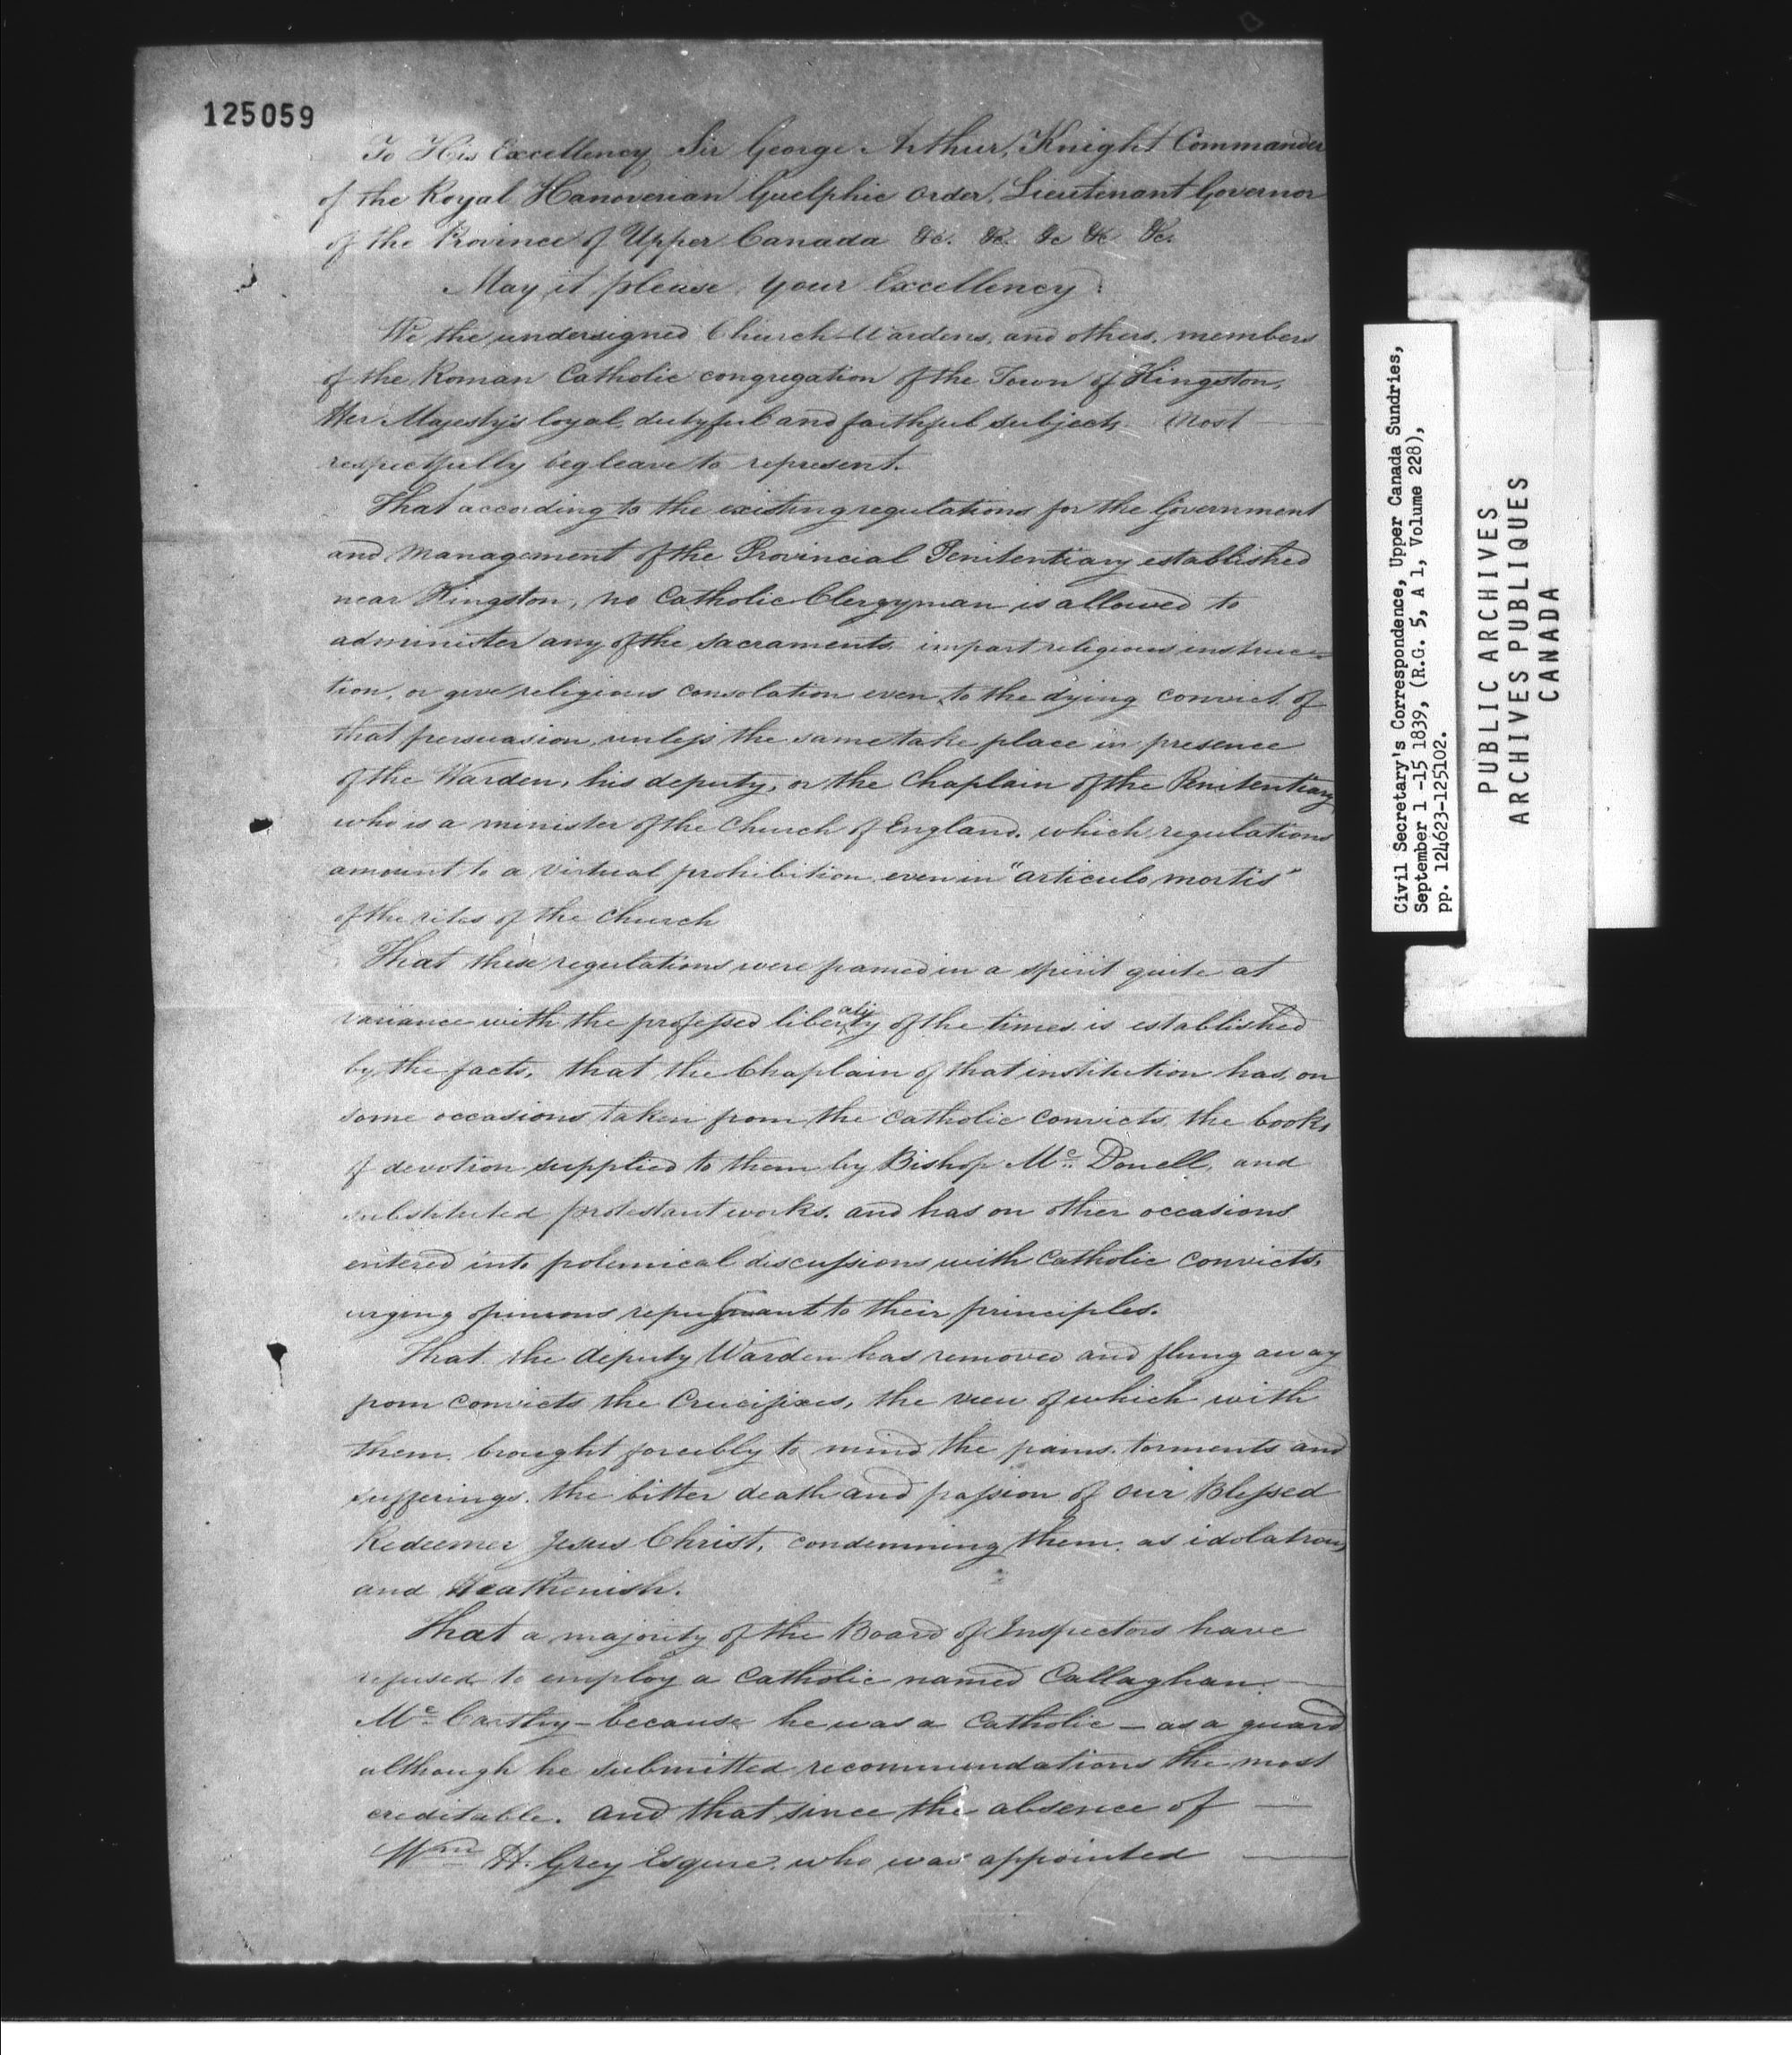 125059
To His Excellency Sir George Arthur, Knight Commander
of the Royal Hanoverian Guelphic Order, Lieutenant Governor
of the Province of Upper Canada &c. &c. &c &c &c.
May it please your Excellency.
We the undersigned Church-Wardens, and others, members
of the Roman Catholic congregation of the Town of Kingston,
Her Majesty's loyal, dutyful and faithful subjects Most
respectfully beg leave to represent.
That according to the existing regulations for the Government
and management of the Provincial Penitentiary established
near Kingston, no Catholic Clergyman is allowed to
administer any of the sacraments impart religious instruc=
tion, or give religious consolation even to the dying convict of
that persuasion, unless the same take place in presence
of the Warden, his deputy, or the Chaplain of the Penitentiary
who is a minister of the Church of England. which regulations
amount to a virtual prohibition even in "articulo mortis"
of the rites of the Church
That these regulations were framed in a spirit quite at
variance with the professed liberality of the times is established
by the facts, that the Chaplain of that institution has, on
some occasions taken from the Catholic convicts, the books
of devotion supplied to them by Bishop Mc. Donell, and
substituted protestant works. and has on other occasions
entered into polemical discussions with Catholic convicts,
urging opinions repugnant to their principles.
That the deputy Warden has removed and flung away
from convicts the Crucifixes, the view of which with
them brought forcibly to mind the pains, torments and
sufferings. the bitter death and passion of our Blessed
Redeemer Jesus Christ, condemning them as idolatrous
and Heathenish.
That a majority of the Board of Inspectors have
refused to employ a Catholic named Callaghan
Mc. Carthy - because he was a Catholic - as a guard
although he submitted recommendations the most
creditable. and that since the absence of
Wm H. Grey Esquire. who was appointed
Civil Secretary's Correspondence, Upper Canada Sundries,
September 1 -15 1839, (R.G. 5, A 1, Volume 228),
pp. 124623-125102.
PUBLIC ARCHIVES
ARCHIVES PUBLIQUES
CANADA